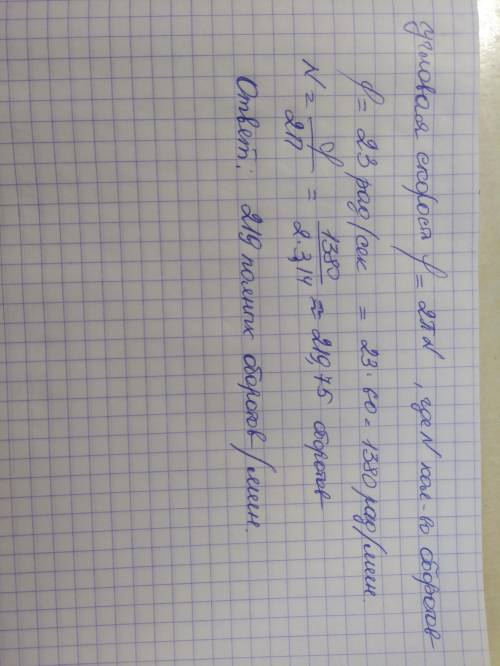 угловая скорость φ = 2πN , где N кол-во оборотов
φ = 23 рад/сек = 23·60 = 1380 рад/мин.
N = φ/2π = 1380/2·3,14 ≈ 219,75 оборотов
Ответ: 219 полных оборотов/мин.